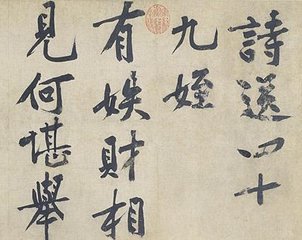 詩送四十
九姪
有娭財相
見何堪舉